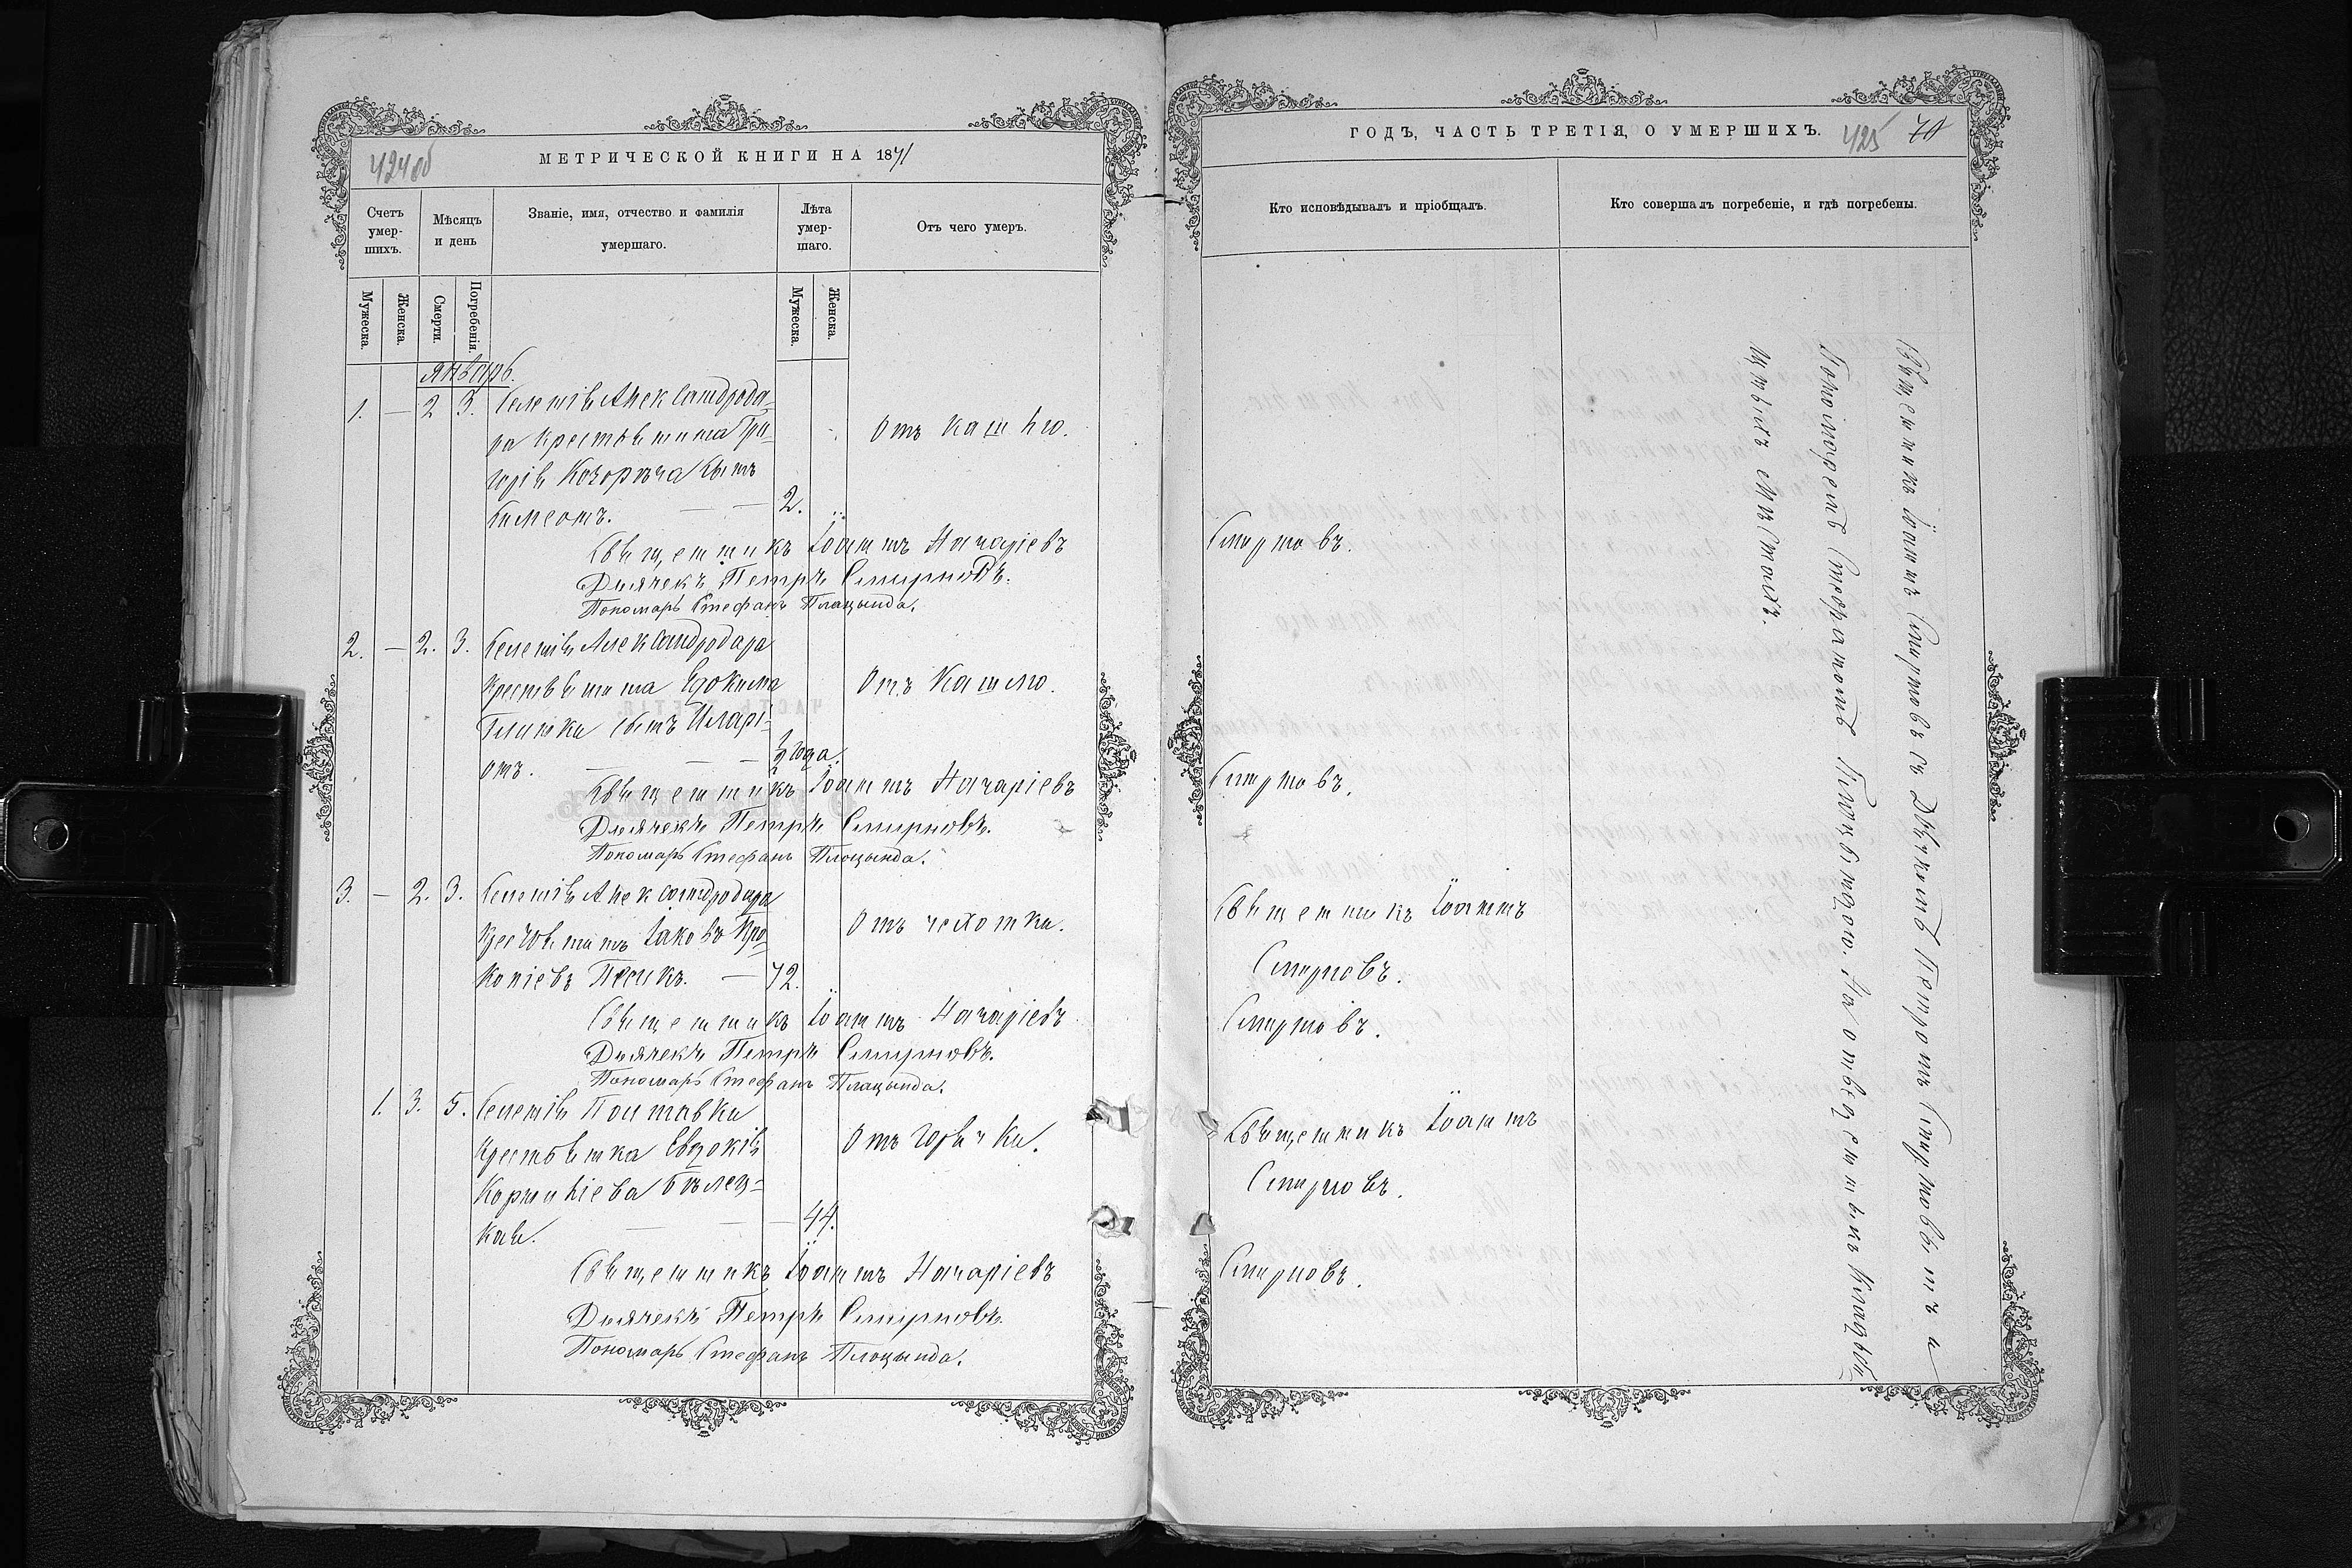 424об
МЕТРИЧЕСКОЙ КНИГИ НА 1871
Счетъ умер-шихъ.
Мѣсяцъ и день
Званіе, имя, отчество и фамилія умершаго.
Лѣта умер-шаго.
Отъ чего умеръ.
Мужеска.
Женска.
Смерти.
Погребенія.
Мужеска.
Женска.
Январь.
1. — 2 3. Селенія Александрода-
ра крестьянина Гри- Отъ кашлю.
горія сынъ
Симеонъ. — — 2.
Священникъ Іоаннъ Назаріевъ
Дьячекъ Петръ Смирновъ.
Пономарь Стефанъ Плацында.
2. — 2. 3. Селенія Александродара
крестьянина Евдокима Отъ кашлю.
Глинки сынъ Иларі-
онъ. — — — 1/2 года.
Священникъ Іоаннъ Назаріевъ
Дьячекъ Петръ Смирновъ.
Пономарь Стефанъ Плацында.
3. — 2. 3. Селенія Александродара
крестьянинъ Іаковъ Про- Отъ чахотки.
копіевъ — 72.
Священникъ Іоаннъ Назаріевъ
Дьячекъ Петръ Смирновъ.
Пономарь Стефанъ Плацында.
1. 3. 5. Селенія Полтавки
крестьянка Евдокія Отъ горячки.
Корниліева Бѣлец-
кая. — — — 44.
Священникъ Іоаннъ Назаріевъ
Дьячекъ Петръ Смирновъ.
Пономарь Стефанъ Плацында.
ГОДЪ, ЧАСТЬ ТРЕТІЯ, О УМЕРШИХЪ.
425 70
Кто исповѣдывалъ и пріобщалъ.
Кто совершалъ погребеніе, и гдѣ погребены.
Смирновъ.
Смирновъ.
Священникъ Іоаннъ
Смирновъ.
Смирновъ.
Священникъ Іоаннъ
Смирновъ.
Смирновъ.
Священникъ Іоаннъ Смирновъ съ Дьячкомъ Петромъ Смирновымъ и
Пономаремъ Стефаномъ Плацындою. На отведенныхъ кладби-
щныхъ мѣстахъ.